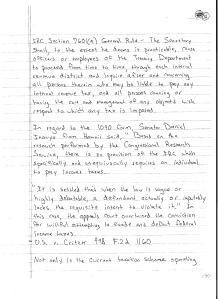 IRC Section 7601(a) General Rule - The Secretary
Shall, to the extent he deems it practicable, cause
officers or employees of the Treasury Department
to proceed from time to time, through each internal
revenue district and inquire after and concerning
all persons therein who may be liable to pay any
internal revenue tax, and all persons owning or
having the care and management of any objects with
respect to which any tax is imposed.
In regard to the 1040 Form, Senator Daniel
Inouye from Hawaii said, " Based on the
research performed by the Congressional Research
Service, there is no provision of the IRC which
specifically and unequivocally requires an individual
to pay income taxes.
"It is settled that when the law is vague or
highly debatable, a defendant actually or imputedly
lacks the requisite intent to violate it." In
this case, the appeals court overturned the conviction
for willful attempting to evade and defeat federal
income taxes.
U.S. v. Critzer 498 F.2d 1160
Not only is the current taxation scheme operating